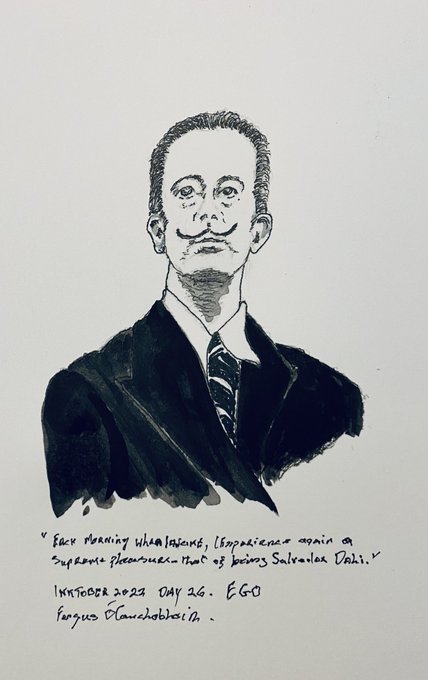 "Each Morning When I Awake, I Experience again a
Supreme Pleasure - that of being Salvador Dali."
INKTOBER 2022 DAY 26. EGO
Fergus Ó Conchobhair.